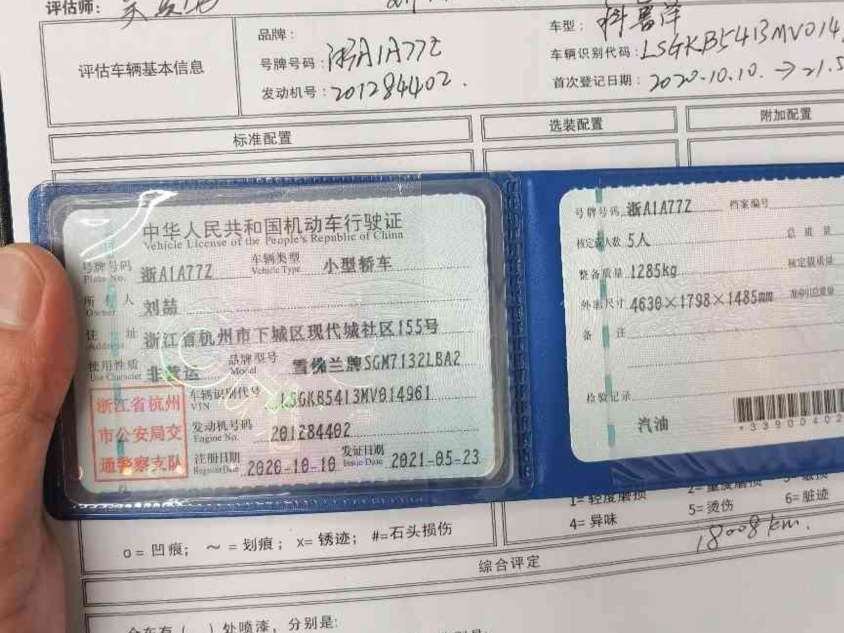 评估师：
评估车辆基本信息
品牌：
号牌号码：浙A1A77Z
发动机号：201284402.
车型：科鲁泽
车辆识别代码：LSGKB5413MV014
首次登记日期：2020.10.10. → 21.5
标准配置
选装配置
附加配置
中华人民共和国机动车行驶证
Vehicle License of the People's Republic of China
号牌号码 浙A1A77Z 车辆类型 小型轿车
Plate No. Vehicle Type
所有人 刘喆
Owner
住址 浙江省杭州市下城区现代城社区155号
Address
使用性质 非营运 品牌型号 雪佛兰牌SGM7132LBA2
Use Character Model
浙江省杭州市公安局交通警察支队
车辆识别代号 LSGKB5413MV014961
VIN
发动机号码 201284402
Engine No.
注册日期 2020-10-10 发证日期 2021-05-23
Register Date Issue Date
号牌号码 浙A1A77Z 档案编号
核定载人数 5人 总质量
整备质量 1285kg 核定载质量
外廓尺寸 4630×1798×1485mm 准牵引总质量
备注
检验记录
汽油
*33900402
1=轻度磨损 2=重度磨损
4=异味 5=烫伤 6=脏迹
o=凹痕；～=划痕；x=锈迹；#=石头损伤
18008km.
综合评定
全车有（ ）处喷漆，分别是：